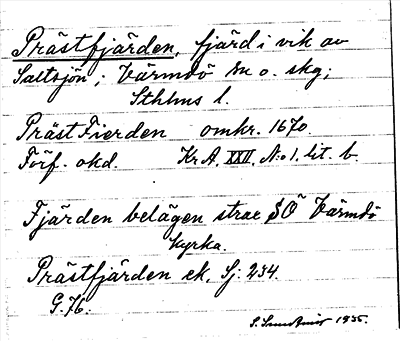 Prästfjärden, fjärd i vik av
Saltsjön; Värmdö sn o. skg;
Sthlms l.
PrästFierden omkr. 1670.
Förf. okd. Kr A. XXII, A:o 1, lit. b.
Fjärden belägen strax SÖ Värmdö
kyrka.
Prästfjärden ek. Sj: 234.
G.76.
S. 1935.